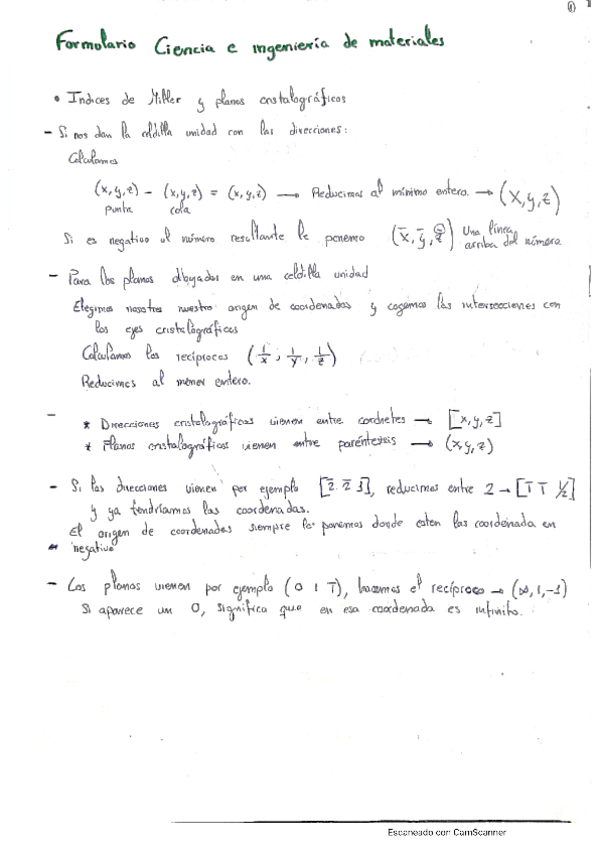 ①
Formulario Ciencia e ingeniería de materiales
• Indices de Miller y planos cristalográficos
- Si nos dan la celdilla unidad con las direcciones:
Calculamos
(x,y,z) - (x,y,z) = (x,y,z) → Reducimos al mínimo entero. → (x,y,z)
punta cola
Si es negativo el número resultante le ponemos (x̄, ȳ, z̄) Una línea
arriba del número.
- Para los planos dibujados en una celdilla unidad
Elegimos nosotros nuestro origen de coordenadas y cogemos las intersecciones con
los ejes cristalográficos
Calculamos los recíprocos (1/x, 1/y, 1/z)
Reducimos al menor entero.
-
* Direcciones cristalográficas vienen entre corchetes → [x,y,z]
* Planos cristalográficos vienen entre paréntesis → (x,y,z)
- Si las direcciones vienen por ejemplo [2̄ 2̄ 1], reducimos entre 2 → [1̄ 1̄ 1/2]
y ya tendríamos las coordenadas.
El origen de coordenadas siempre lo ponemos donde esten las coordenada en
negativo
- Los planos vienen por ejemplo (0 1 1̄), hacemos el recíproco → (∞,1,-1)
Si aparece un 0, significa que en esa coordenada es infinito.
Escaneado con CamScanner